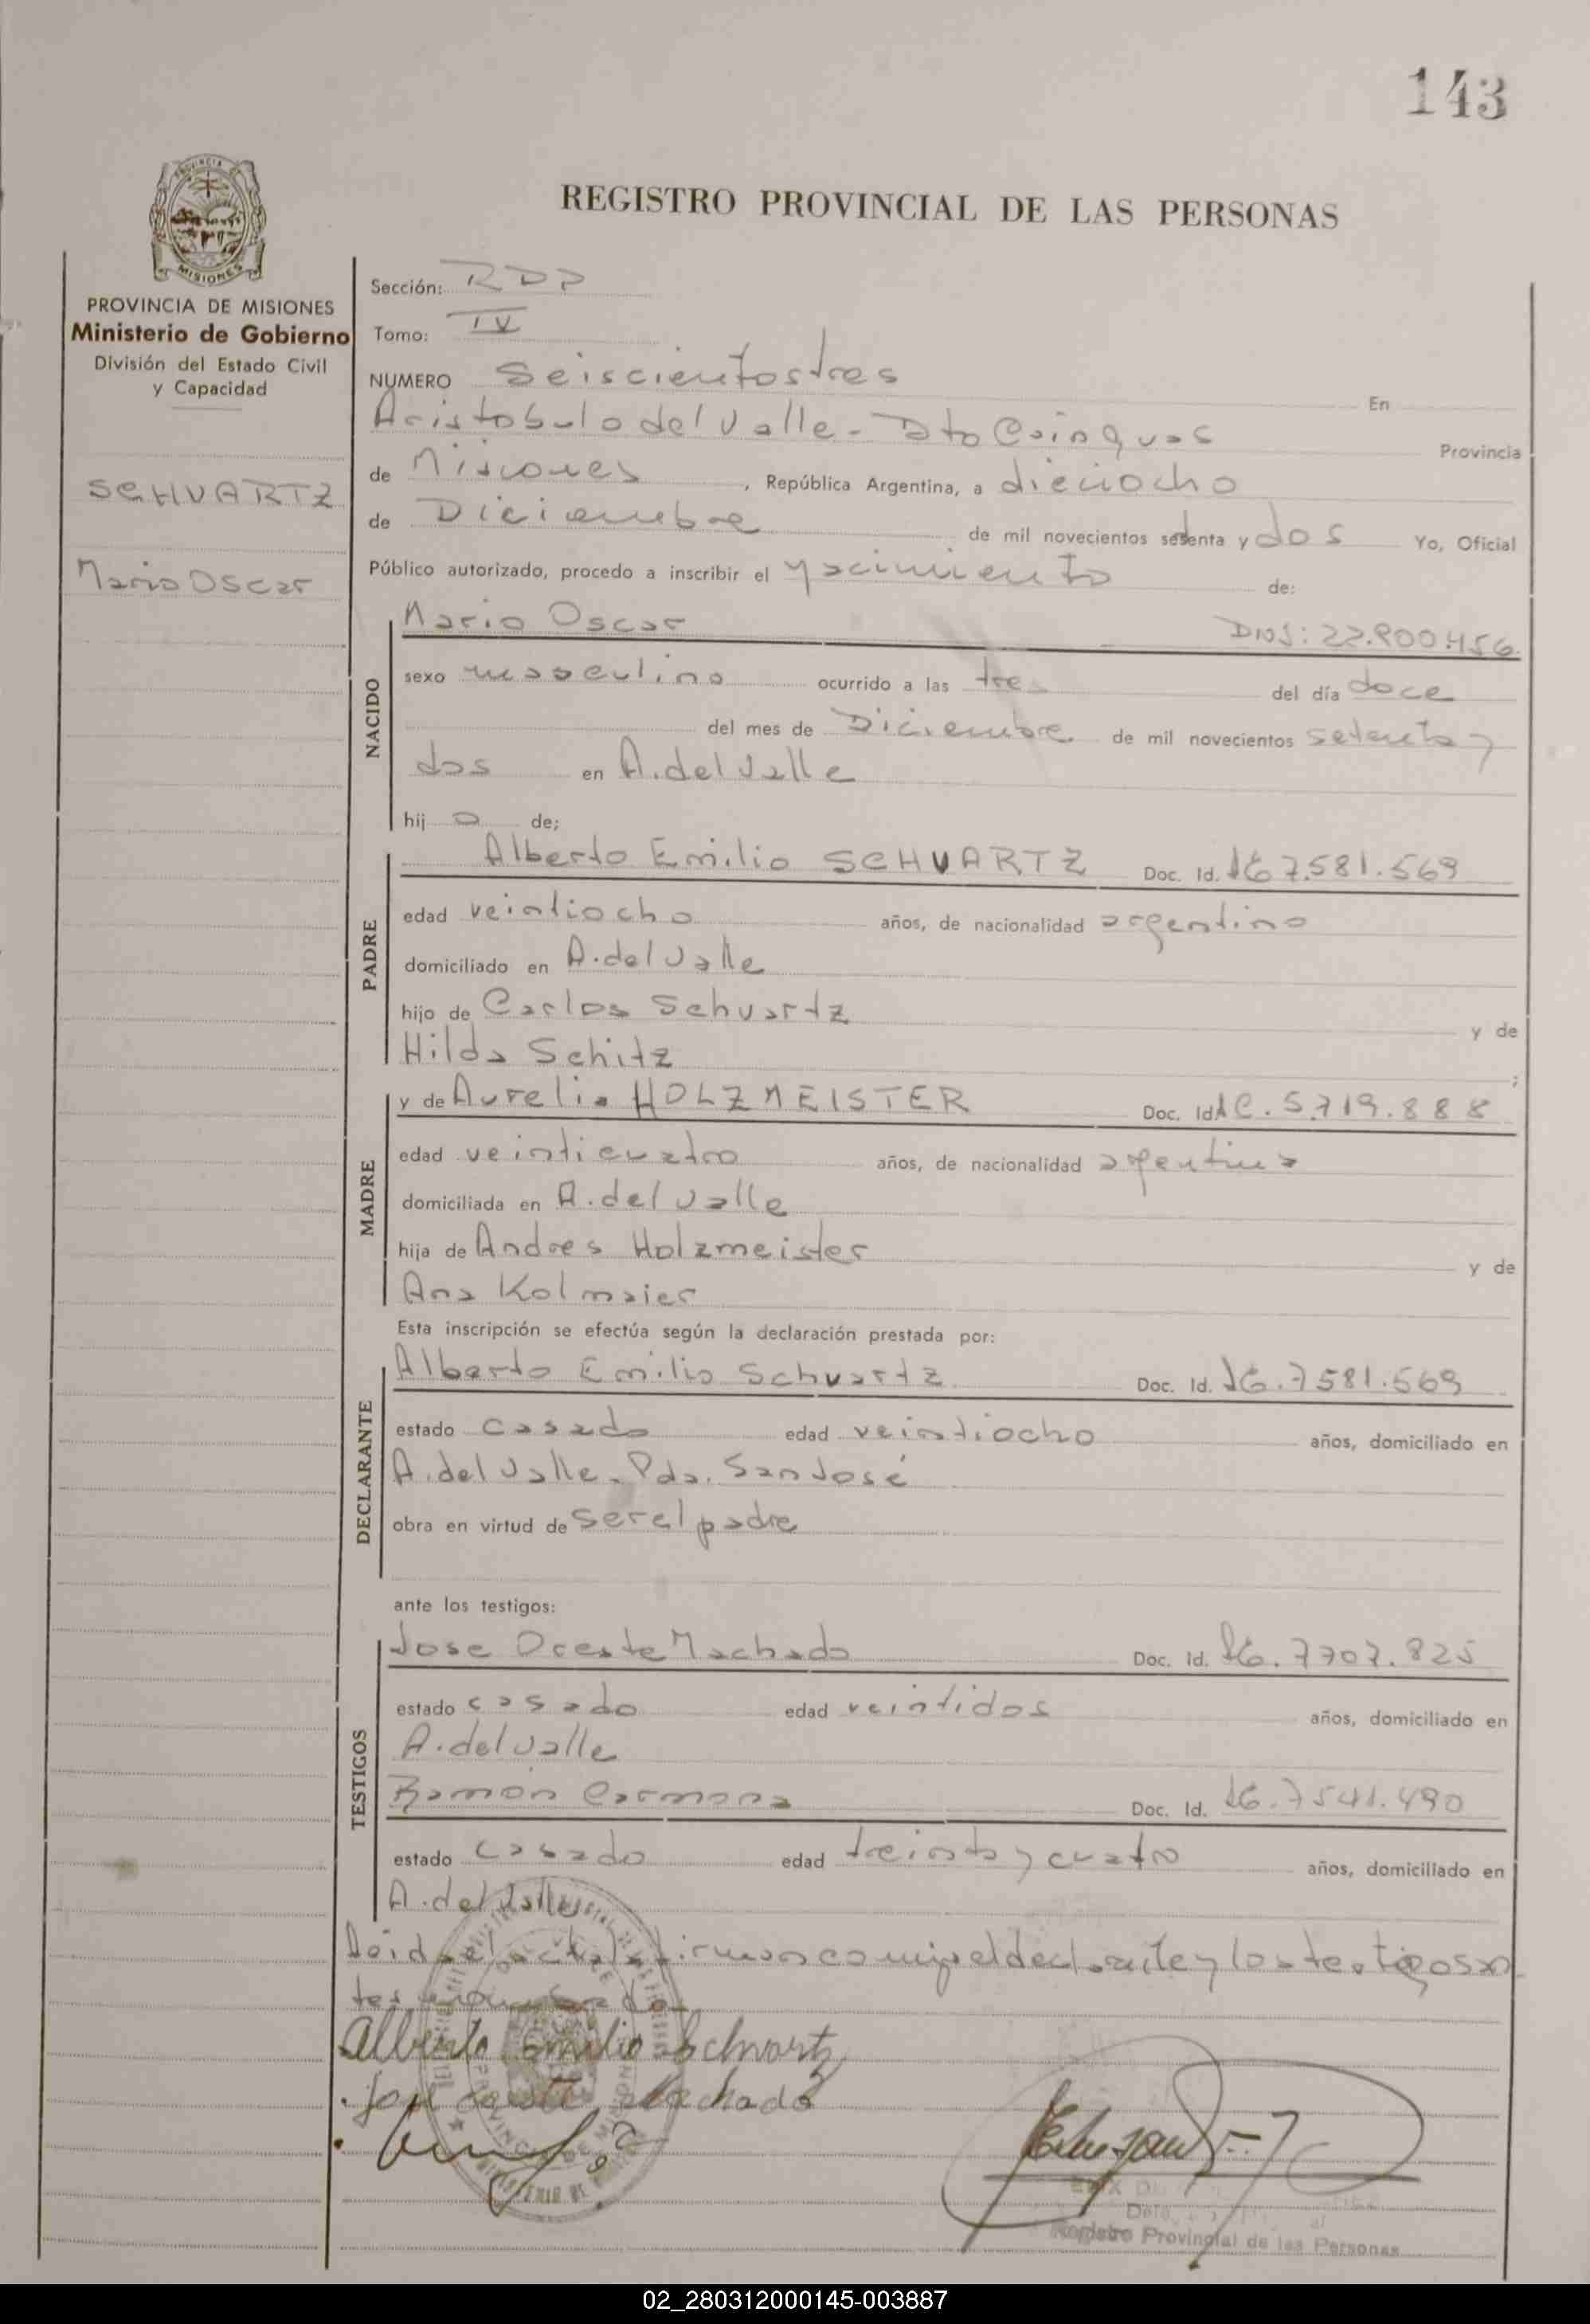 143
REGISTRO PROVINCIAL DE LAS PERSONAS
MISIONES
PROVINCIA DE MISIONES
Ministerio de Gobierno
División del Estado Civil
y Capacidad
SCHVARTZ
Mario Oscar
Sección: RDP
Tomo: IV
NUMERO Seiscientos tres En
Aristobulo del Valle - Dto Cainguas Provincia
de Misiones, República Argentina, a dieciocho
de Diciembre de mil novecientos setenta y dos Yo, Oficial
Público autorizado, procedo a inscribir el nacimiento de:
NACIDO
Mario Oscar DNI: 22.900.456
sexo masculino ocurrido a las tres del día doce
del mes de Diciembre de mil novecientos setenta y
dos en A. del Valle
hij o de;
PADRE
Alberto Emilio SCHVARTZ Doc. Id. 7.581.569
edad veintiocho años, de nacionalidad argentino
domiciliado en A. del Valle
hijo de Carlos Schvartz y de
Hilda Schitz ;
MADRE
y de Aurelia HOLZMEISTER Doc. Id. 5.719.888
edad veinticuatro años, de nacionalidad argentina
domiciliada en A. del Valle
hija de Andres Holzmeister y de
Ana Kolmaier
Esta inscripción se efectúa según la declaración prestada por:
DECLARANTE
Alberto Emilio Schvartz Doc. Id. 7581.569
estado casado edad veintiocho años, domiciliado en
A. del Valle. Pda. San José
obra en virtud de ser el padre
ante los testigos:
TESTIGOS
Jose Oreste Machado Doc. Id. 7707.825
estado casado edad veintidos años, domiciliado en
A. del Valle
Ramón Carmona Doc. Id. 7541.490
estado casado edad treinta y cuatro años, domiciliado en
A. del Valle
Leida el acta la firman conmigo el declarante y los testigos an
tes nombrados
Alberto Emilio Schvartz
Jose Oreste Machado
Registro Provincial de las Personas
02_280312000145-003887